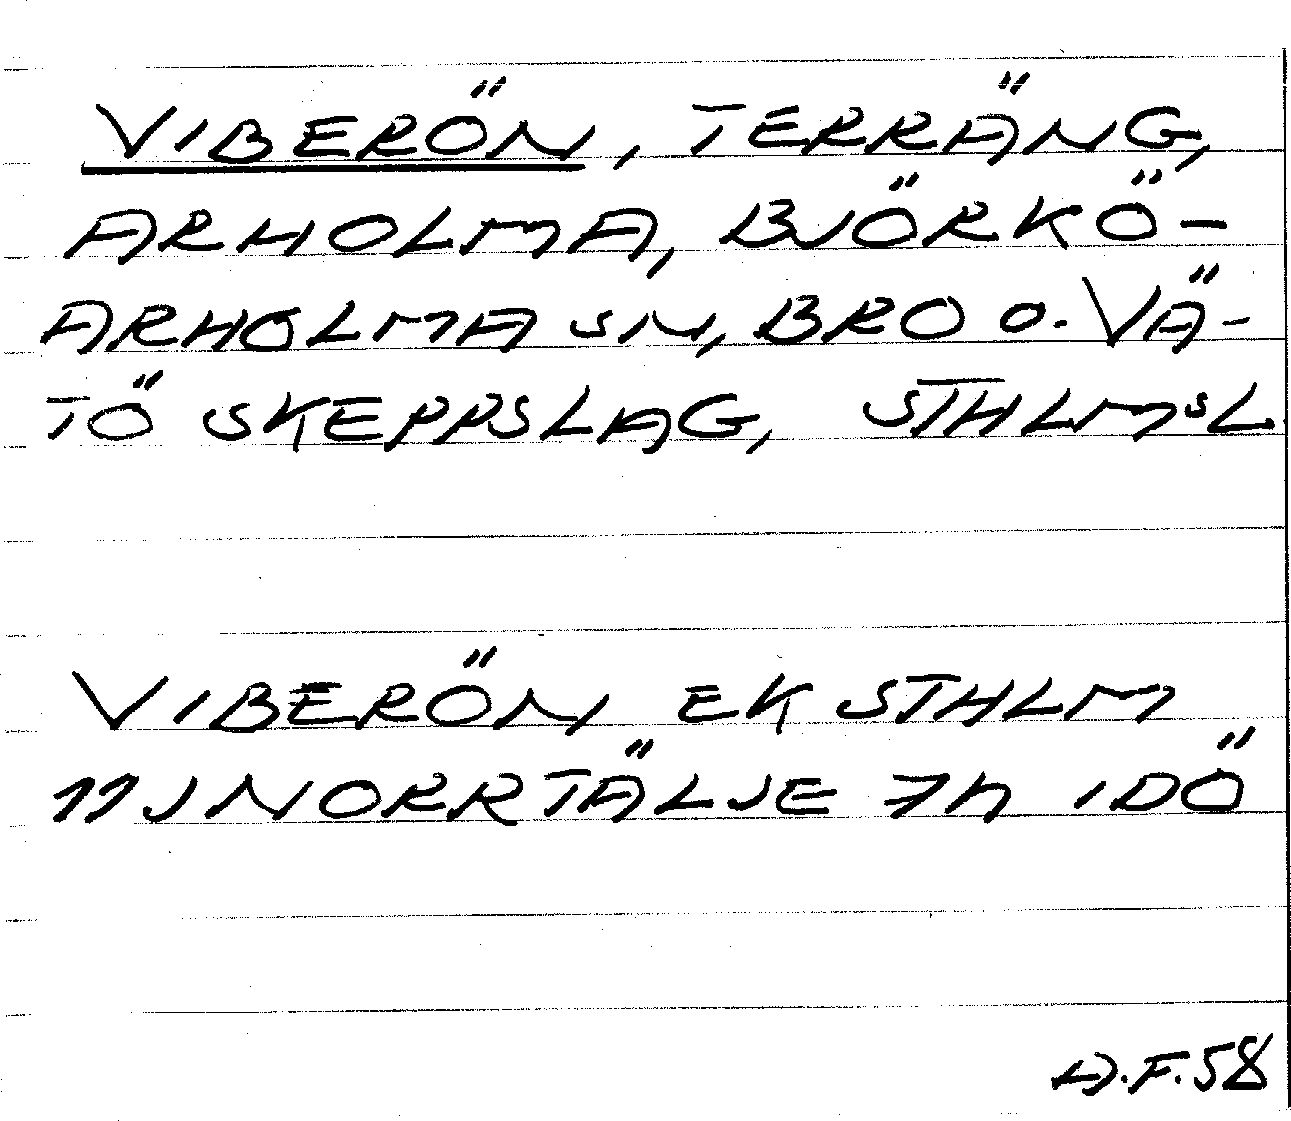 VIBERÖN, TERRÄNG,
ARHOLMA, BJÖRKÖ-
ARHOLMA SN, BRO O. VÄ-
TÖ SKEPPSLAG, STHLMSL.
VIBERÖN EK STHLM
11J NORRTÄLJE 7h IDÖ
A.F.58